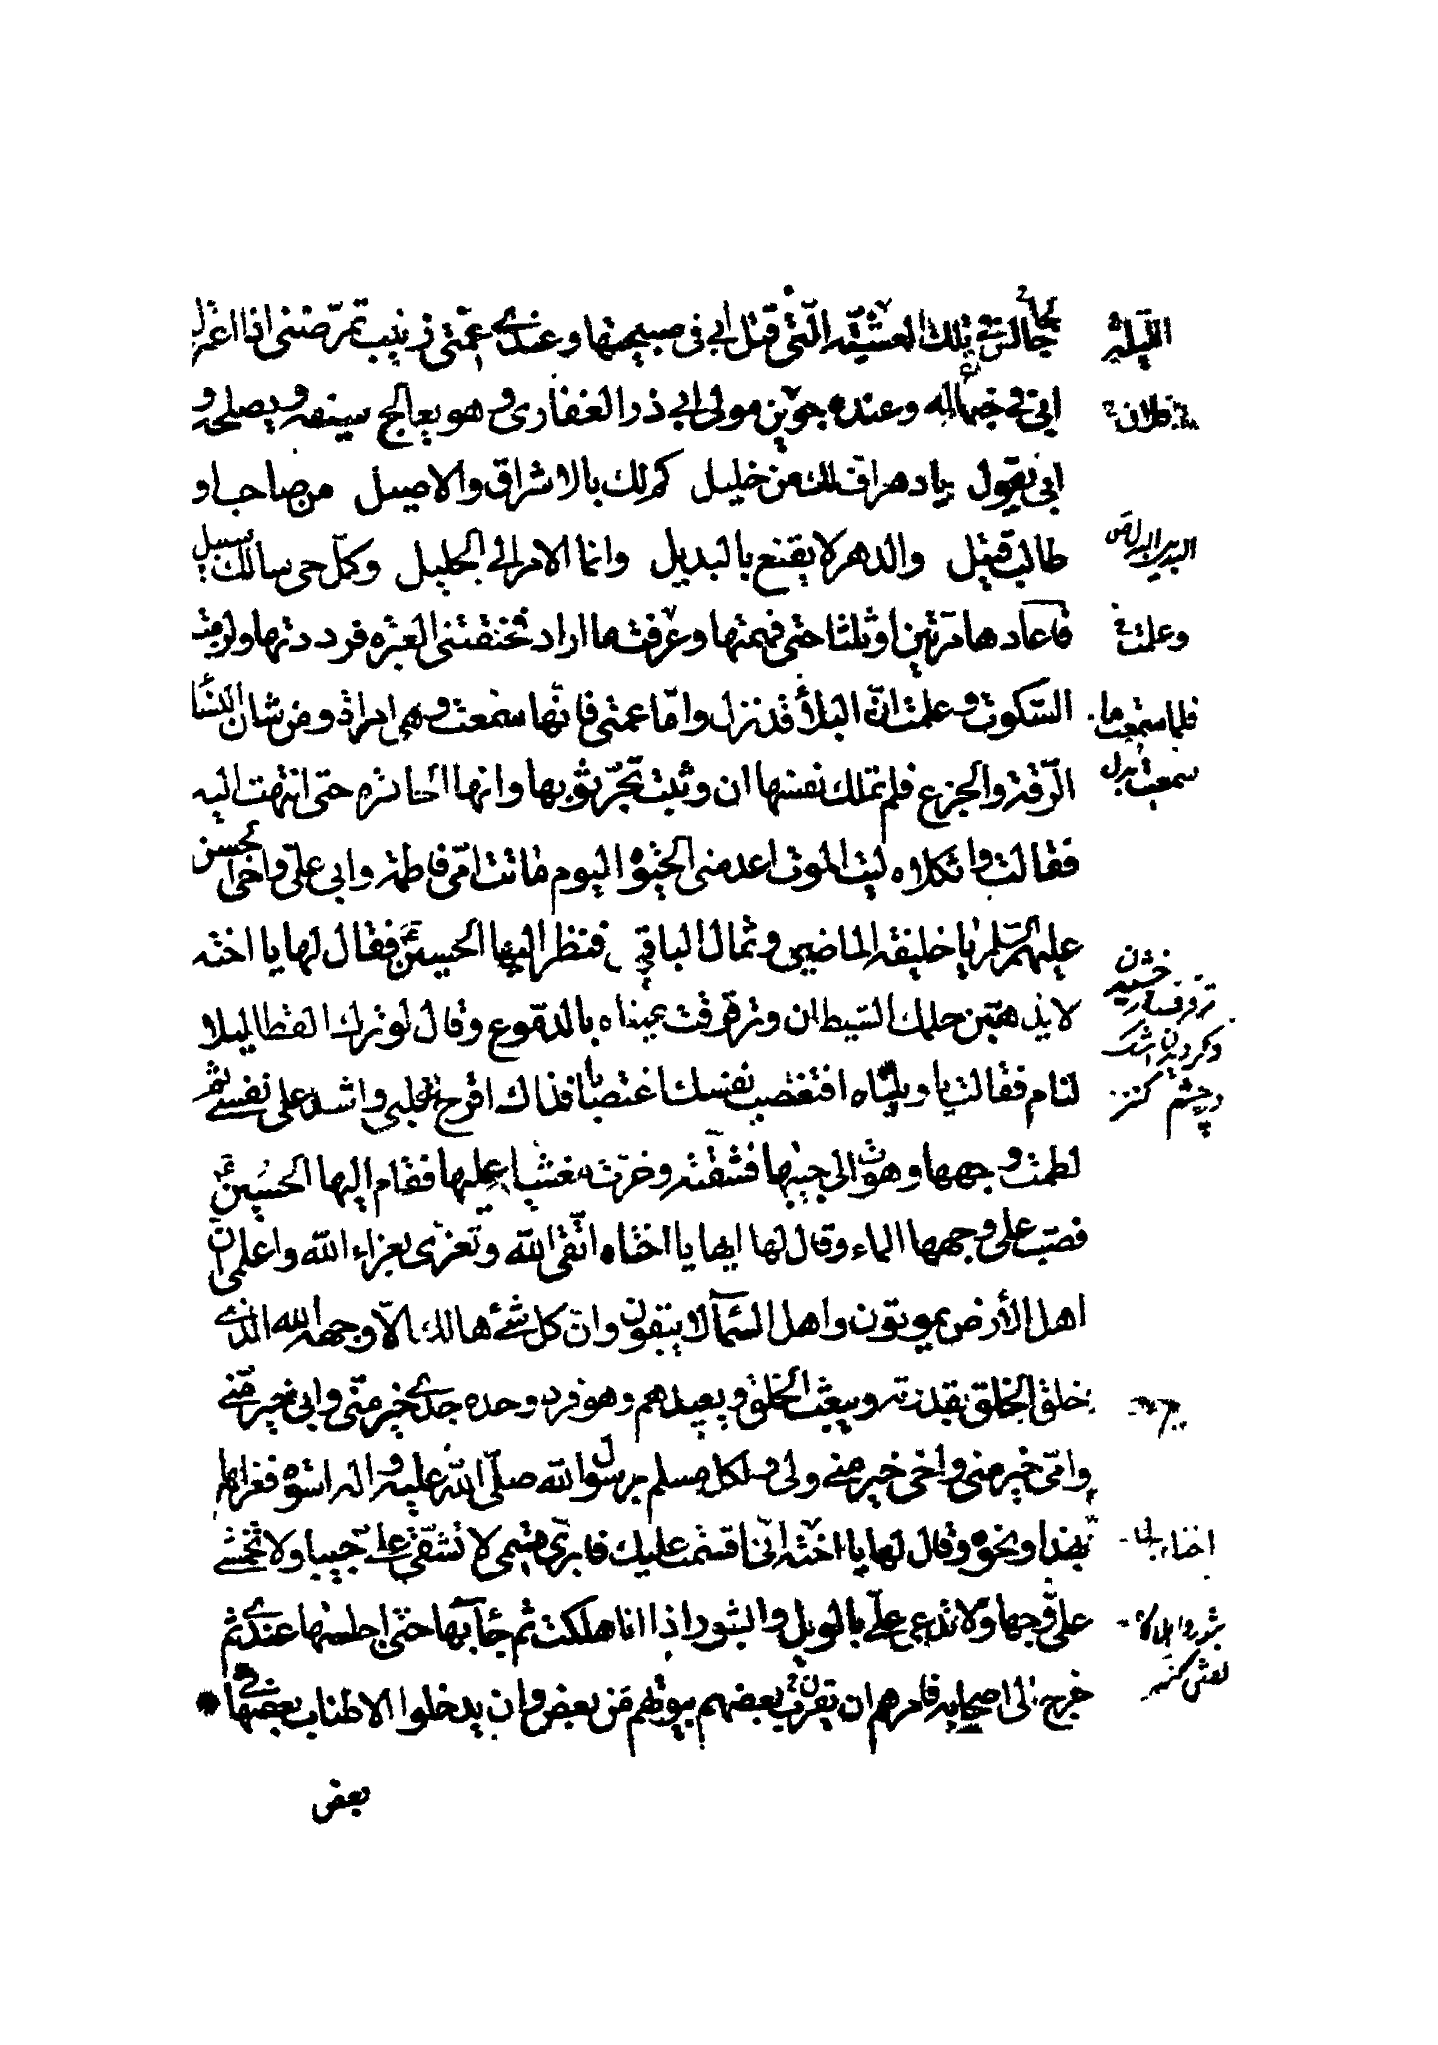 جالس في تلك العشيّة الّتي قتل ابي في صبيحتها وعندي عمّتي زينب تمرّضني اذا اعتزل
ابي في خباء له وعنده جوين مولى ابي ذر الغفاري وهو يعالج سيفه ويصلحه و
ابي يقول يا دهر افّ لك من خليل كم لك بالاشراق والاصيل من صاحب او
طالب قتيل والدهر لا يقنع بالبديل وانما الامر الى الجليل وكلّ حي سالك سبيل
فاعادها مرّتين او ثلثا حتى فهمتها وعرفت ما اراد فخنقتني العبره فرددتها ولزمت
السّكوت وعلمت انّ البلاء قد نزل وامّا عمتي فانّها سمعت وهي امراة ومن شان النساء
الرّقة والجزع فلم تملك نفسها ان وثبت تجرّ ثوبها وانها لحاسره حتى انتهت اليه
فقالت وا ثكلاه ليت الموت اعدمني الحيوة اليوم ماتت امّي فاطمة وابي علي واخي الحسن
عليهم السلم يا خليفة الماضين وثمال الباقين فنظر اليها الحسين فقال لها يا اخته
لا يذهبن حلمك الشيطان وترقرقت عيناه بالدموع وقال لو ترك القطا ليلا
لنام فقالت يا ويلتاه افتغصب نفسك اغتصابا فذاك اقرح لقلبي واشد على نفسي ثمّ
لطمت وجهها وهوت الى جيبها فشقّته وخرّت مغشيا عليها فقام اليها الحسين
فصبّ على وجهها الماء وقال لها ايها يا اختاه اتّقى الله وتعزّى بعزاء الله واعلمي ان
اهل الأرض يموتون واهل السّماء لا يبقون وانّ كل شئ هالك الّا وجهه الله الذي
خلق الخلق بقدرته ويبعث الخلق ويعيدهم وهو فرد وحده جدي خير منّي وابي خير منّي
وامّي خير مني واخي خير مني ولي ولكل مسلم برسول الله صلّى الله عليه واله اسوة فعزاها
بهذا ونحوه وقال لها يا اخته انّي اقسمت عليك فابرّي قسمي لا تشقّي علي جيبا ولا تخمشي
علي وجها ولا تدعي علي بالويل والثبور اذا انا هلكت ثم جاء بها حتى اجلسها عندي ثم
خرج الى اصحابه فامرهم ان يقرب بعضهم بيوتهم من بعض وان يدخلوا الاطناب بعضها في
بعض
وعلمت
فلما سمعت ما
سمعت
چشم